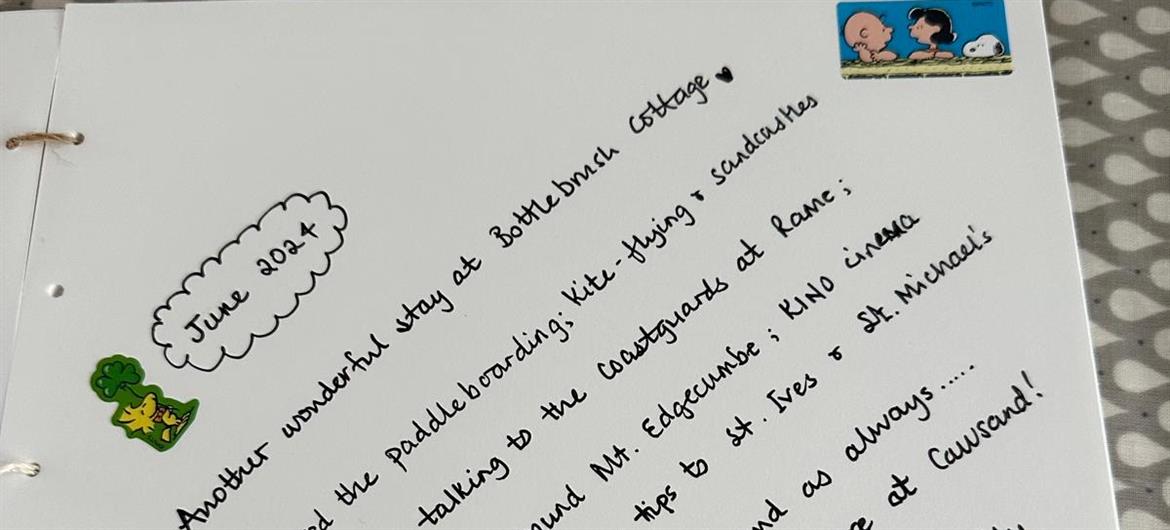 June 2024
Another wonderful stay at Bottlebrush Cottage
the paddleboarding; Kite-flying & sandcastles
talking to the coastguards at Rame;
Mt. Edgecumbe; KINO cinema
tips to St. Ives & St. Michael's
as always.....
at Cawsand!